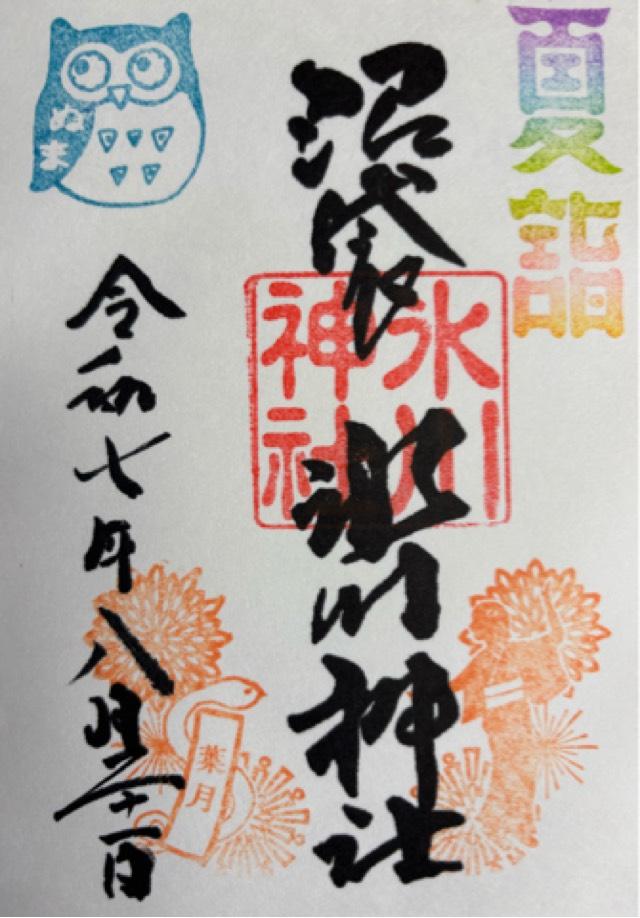 夏詣
沼袋氷川神社
氷川
神社
ぬま
令和七年八月二十一日
葉月